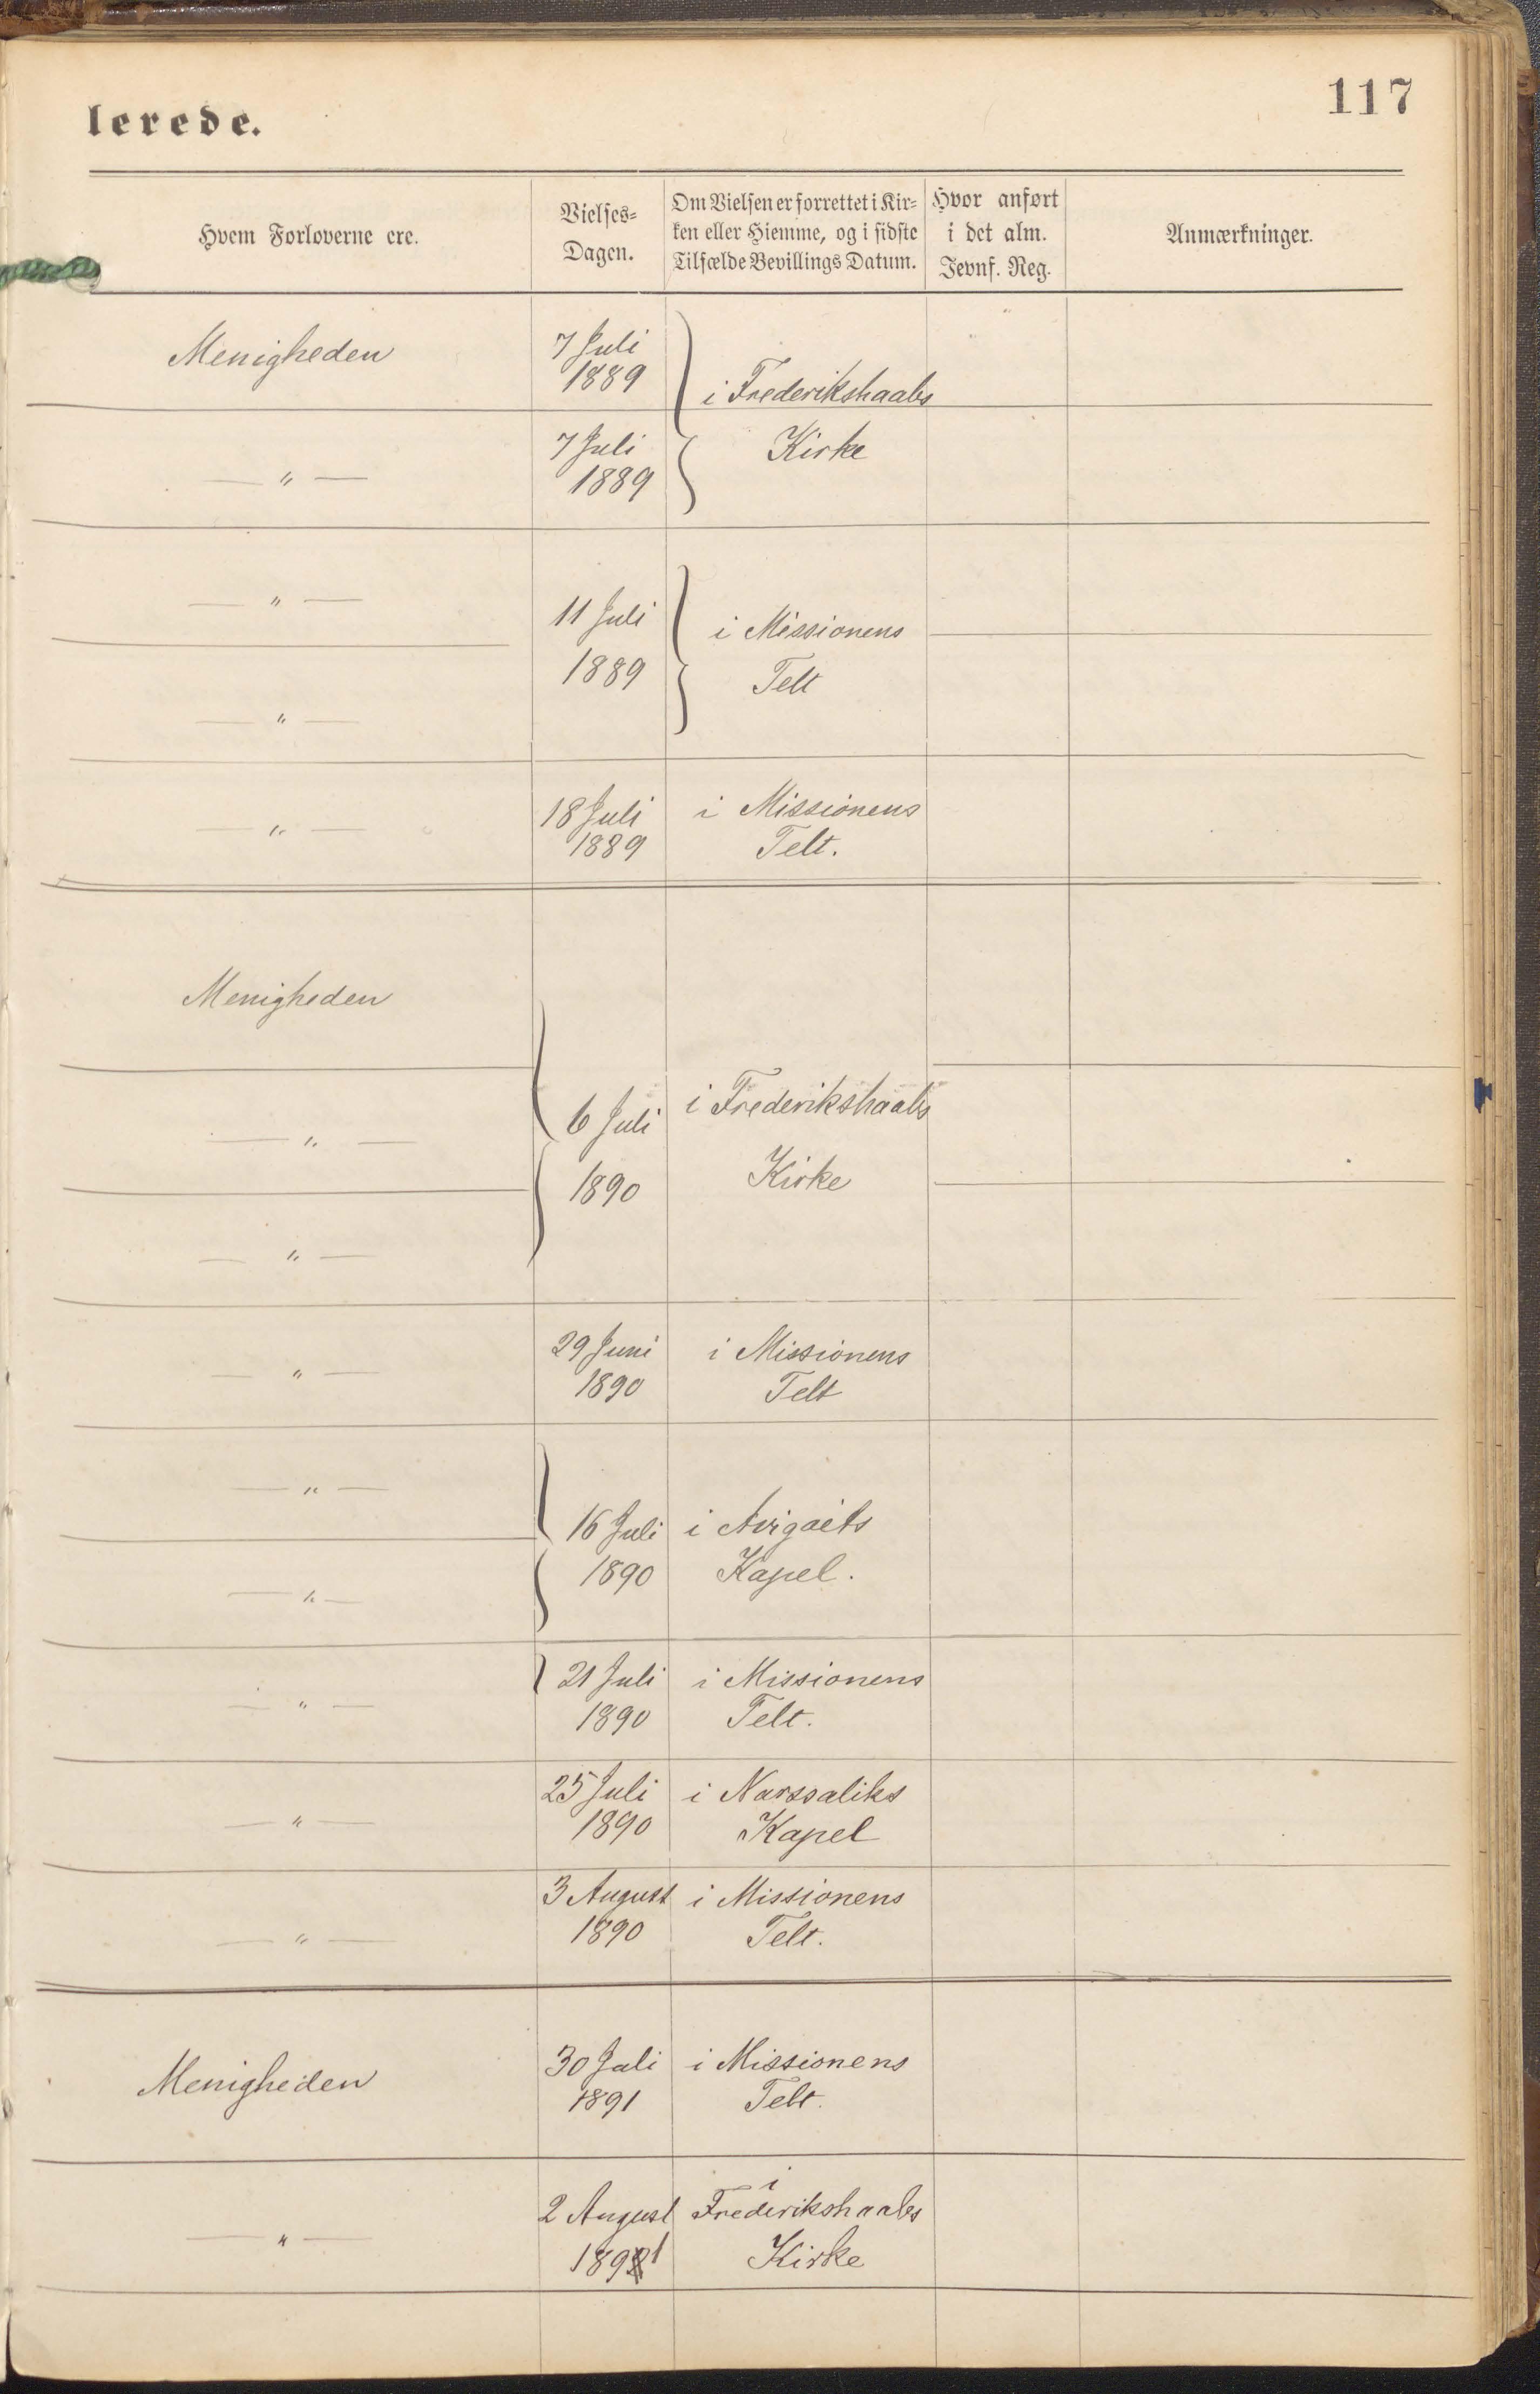 lerede.
117
Hvem Forloverne ere.
Vielses=
Dagen.
Om Vielsen er forrettet i Kir=
ken eller Hiemme, og i sidste
Tilfælde Bevillings Datum.
Hvor anført
i det alm.
Jevnf. Reg.
Anmærkninger.
Menigheden
7 Juli
1889
i Frederikshaabs
— " —
7 Juli
1889
Kirke
— " —
11 Juli
i Missionens
1889
Telt
— " —
— " —
18 Juli
1889
i Missionens
Telt.
Menigheden
6 Juli
i Frederikshaabs
— " —
1890
Kirke
— " —
— " —
29 Juni
1890
i Missionens
Telt
— " —
16 Juli
i Avigaits
— " —
1890
Kapel.
— " —
21 Juli
1890
i Missionens
Telt.
— " —
25 Juli
1890
i Narssaliks
Kapel
— " —
3 August
1890
i Missionens
Telt.
Menigheden
30 Juli
1891
i Missionens
Telt.
— " —
2 August
1891
i
Frederikshaabs
Kirke